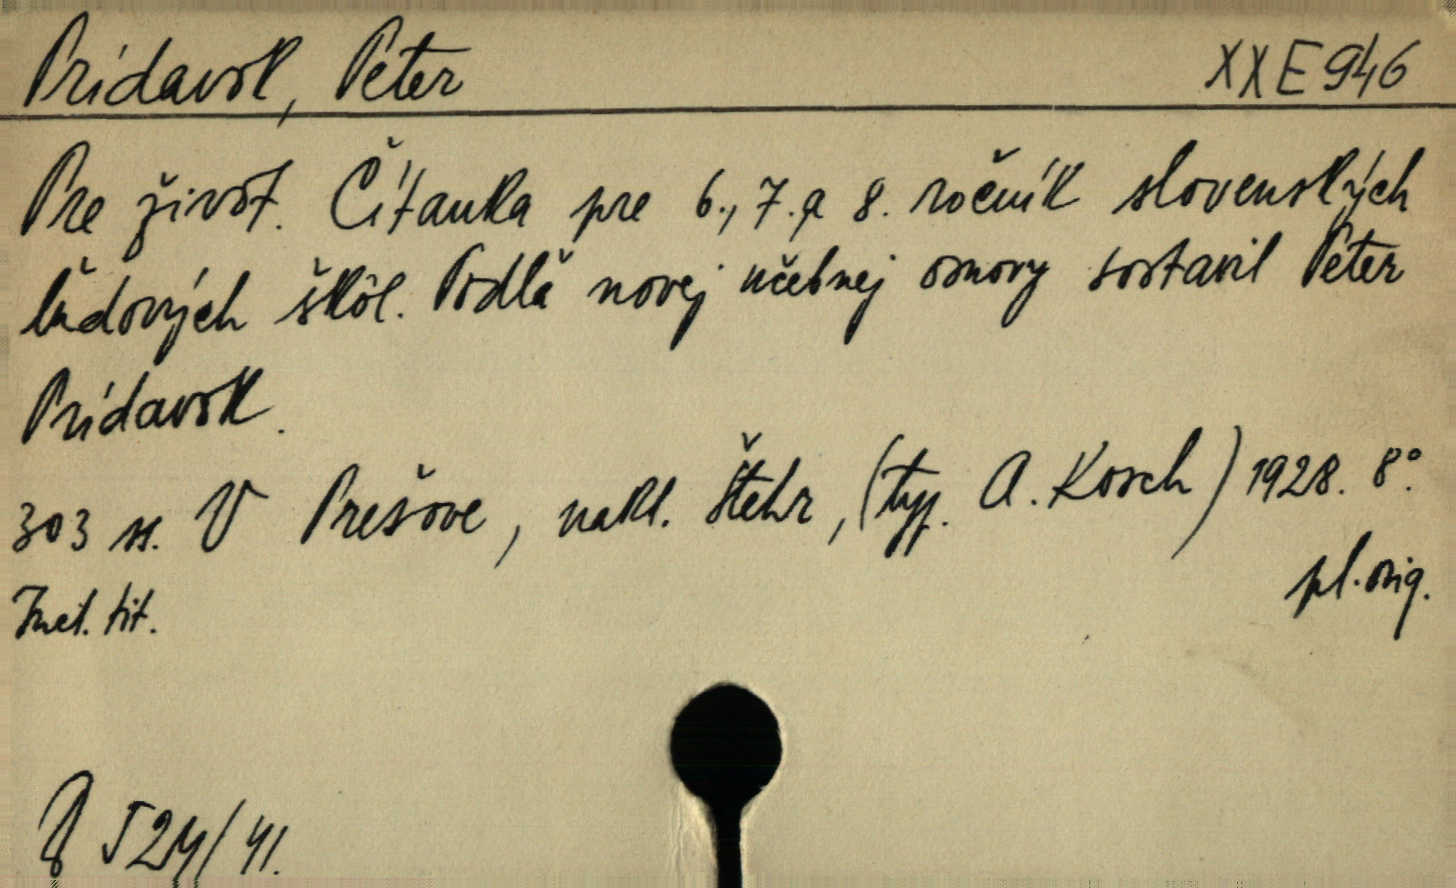 Prídavok, Peter
XX E 946
Pre život. Čítanka pre 6., 7. a 8. ročník slovenských
ľudových škôl. Podľa novej učebnej osnovy sostavil Peter
Prídavok.
303 ss. V Prešove, nakl. Štehr, (typ. A. Kosch) 1928. 8°.
pl. orig.
tit.
524/41.